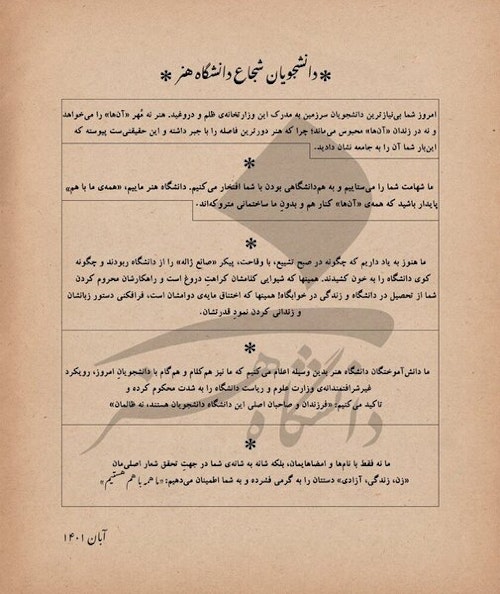 * دانشجویان شجاع دانشگاه هنر *
امروز شما بی‌نیازترین دانشجویان سرزمین به مدرک این وزارتخانه‌ی ظلم و دروغید. هنر نه مُهر «آن‌ها» را می‌خواهد
و نه در زندان «آن‌ها» محبوس می‌ماند؛ چرا که هنر دورترین فاصله را با جبر داشته و این حقیقتی‌ست پیوسته که
این‌بار شما آن را به جامعه نشان دادید.
*
ما شهامت شما را می‌ستاییم و به هم‌دانشگاهی بودن با شما افتخار می‌کنیم. دانشگاه هنر ماییم، «همه‌ی ما با هم»
پایدار باشید که همه‌ی «آن‌ها» کنار هم و بدونِ ما ساختمانی متروکه‌اند.
*
ما هنوز به یاد داریم که چگونه در صبح تشییع، با وقاحت، پیکر «صانع ژاله» را از دانشگاه ربودند و چگونه
کوی دانشگاه را به خون کشیدند. همینها که شیوایی کلامشان کراهتِ دروغ است و راهکارشان محروم کردن
شما از تحصیل در دانشگاه و زندگی در خوابگاه! همینها که اختناق مایه‌ی دوامشان است، فرافکنی دستور زبانشان
و زندانی کردن نمودِ قدرتشان.
*
ما دانش‌آموختگان دانشگاه هنر بدین وسیله اعلام می‌کنیم که ما نیز هم‌کلام و هم‌گام با دانشجویانِ امروز، رویکرد
غیرشرافتمندانه‌ی وزارت علوم و ریاست دانشگاه را به شدت محکوم کرده و
تاکید می‌کنیم: «فرزندان و صاحبان اصلی این دانشگاه دانشجویان هستند، نه ظالمان»
*
ما نه فقط با نام‌ها و امضاهایمان، بلکه شانه به شانه‌ی شما در جهتِ تحقق شعار اصلی‌مان
«زن، زندگی، آزادی» دستتان را به گرمی فشرده و به شما اطمینان می‌دهیم: «ما همه با هم هستیم»
آبان ۱۴۰۱
دانشگاه هنر